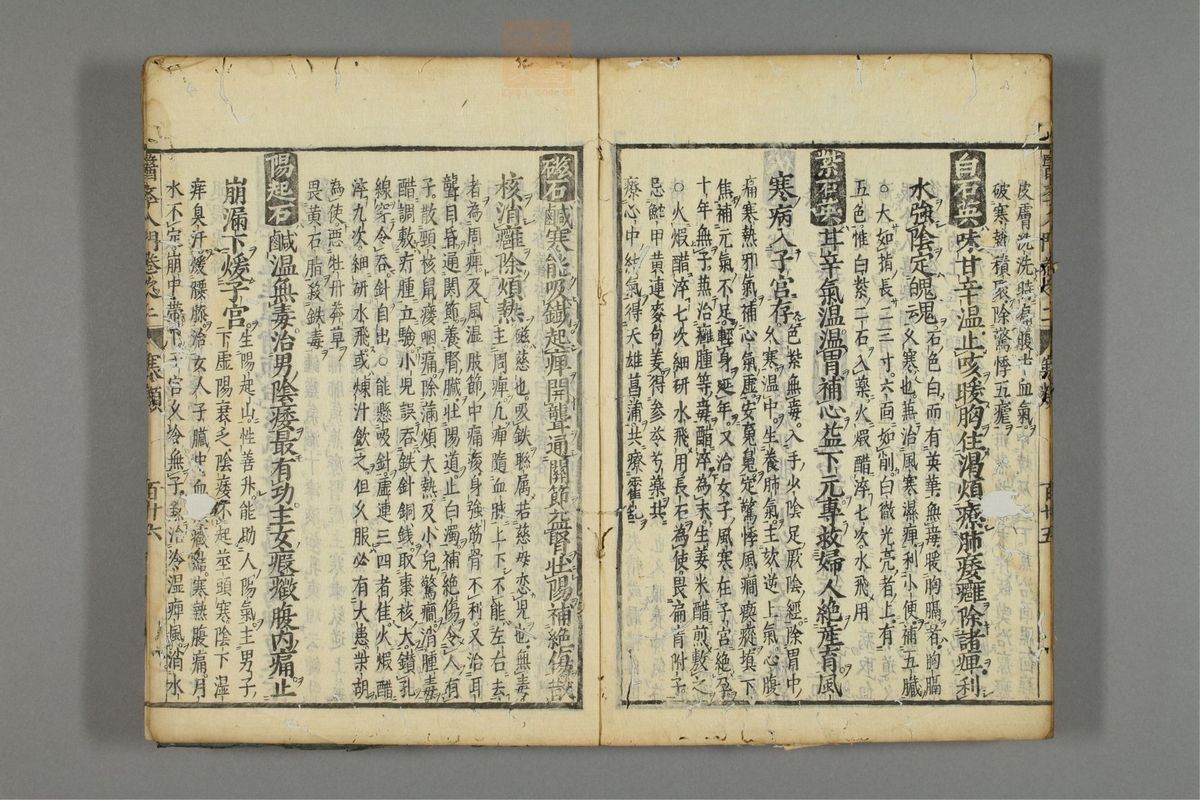 皮膚洗洗時
破寒熱積聚除驚悸五癃
白石英味甘辛温止咳暖胸住渇煩療肺痿癰除諸疸利
水強陰定魄魂
石色白而有英華無毒暖胸膈
久寒也兼治風寒濕痺利小便補五臟
○大如指長二三寸六面如削白微光亮者上有
五色惟白紫二石入藥火煅醋淬七次水飛用
紫石英甘辛氣温温胃補心益下元專救婦人絶産育風
寒病入子宮存
色紫無毒入手少陰足厥陰經除胃中
久寒温中生養肺氣主欬逆上氣心腹
痛寒熱邪氣補心氣虚安魂魄定驚悸風癇瘈瘲填下
焦補元氣不足輕身延年又治女子風寒在子宮絶孕
十年無子兼治癰腫等毒醋淬為末生姜米醋煎敷之
○火煅醋淬七次細研水飛用長石為使畏扁青附子
忌鮀甲黄連麥句姜得參苓芍藥共
療心中結氣得天雄菖蒲共療霍乱
醫學入門卷之二 寒類 百廿五
磁石鹹寒能吸鐵起痺開聾通關節益腎壯陽補絶傷散
核消癰除煩熱
磁慈也吸鉄聮属若慈母恋児也無毒
主周痺九痺隨血脉上下不能左右去
者為周痺及風温肢節中痛痿身強筋骨不利又治耳
聾目昏通関節養腎臟壯陽道止白濁補絶傷令人有
子散頭核鼠瘻咽痛除滿煩大熱及小兒驚癇消腫毒
醋調敷疔腫立驗小児誤吞鉄針銅銭取棗核大鑽孔
線穿令吞針自出○能懸吸針虚連三四者佳火煅醋
淬九次細研水飛或煉汁飲之但久服必有大患柴胡
為使悪牡丹莽草
畏黄石脂殺鉄毒
陽起石鹹温無毒治男陰痿最有功主女瘕癥腹内痛止
崩漏下煖子宮
生陽起山性善升能助人陽氣主男子
下虚陽衰乏陰痿不起莖頭寒陰下湿
痒臭汗煖腰膝治女人子臟中血癥結寒熱腹痛月
水不定崩中帶下子宮久冷無子兼治冷温痺風消水
醫學入門卷之二 寒類 百廿六